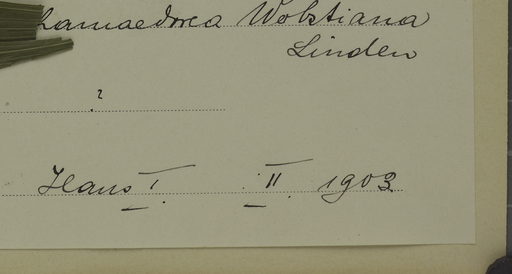 hamaedorea Wobstiana
Linden
?
Haus I. II. 1903